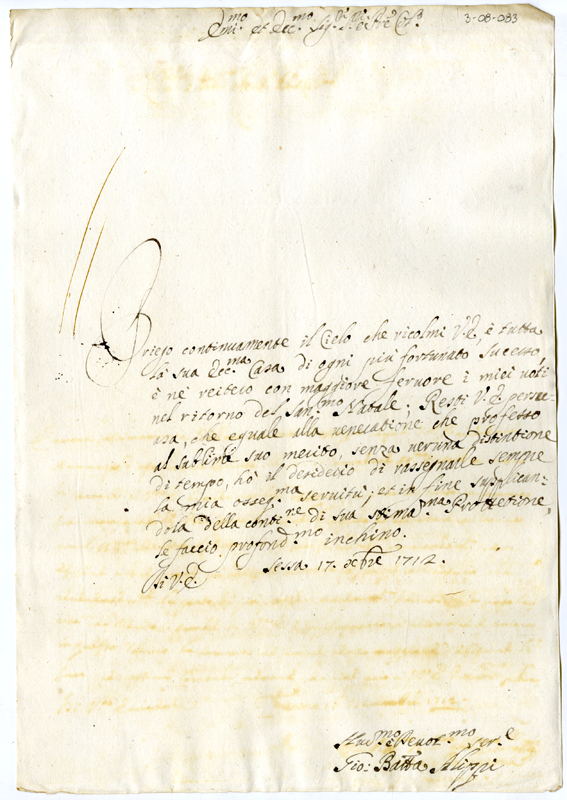 3-08-083
Ill.mo et Ecc.mo Sig.r
Priego continuamente il Cielo che ricolmi V.E. è tutta
la sua Ecc.ma Casa di ogni più fortunato successo,
è ne reitero con maggiore fervore i miei voti
nel ritorno del San.mo Natale; Resti V.E. persu=
asa, che eguale alla veneratione che professo
al sublime suo merito, senza veruna distintione
di tempo, hò il desiderio di rassegnarle sempre
la mia osseq.ma servitù; et in fine supplican:
dola della cont.ne di sua stima.ma Protettione,
le faccio profond.mo inchino.
Di V.E. Sessa 17. Xbre 1712.
Hu.mo è Devot.mo Ser.e
Gio: Batta Alippi